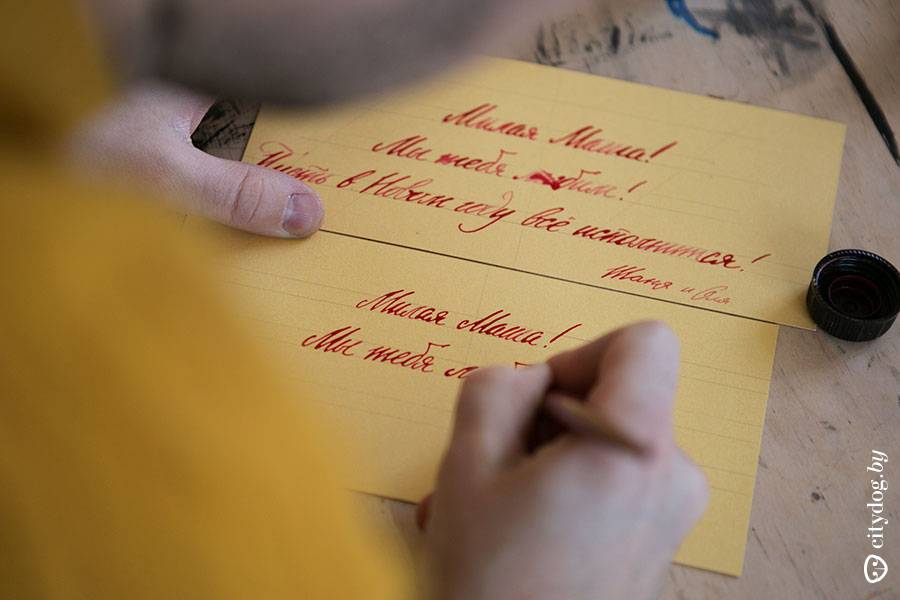 Милая Маша!
Мы тебя любим!
Пусть в Новом году всё исполнится!
Таня и Оля
Милая Маша!
Мы тебя люб
citydog.by